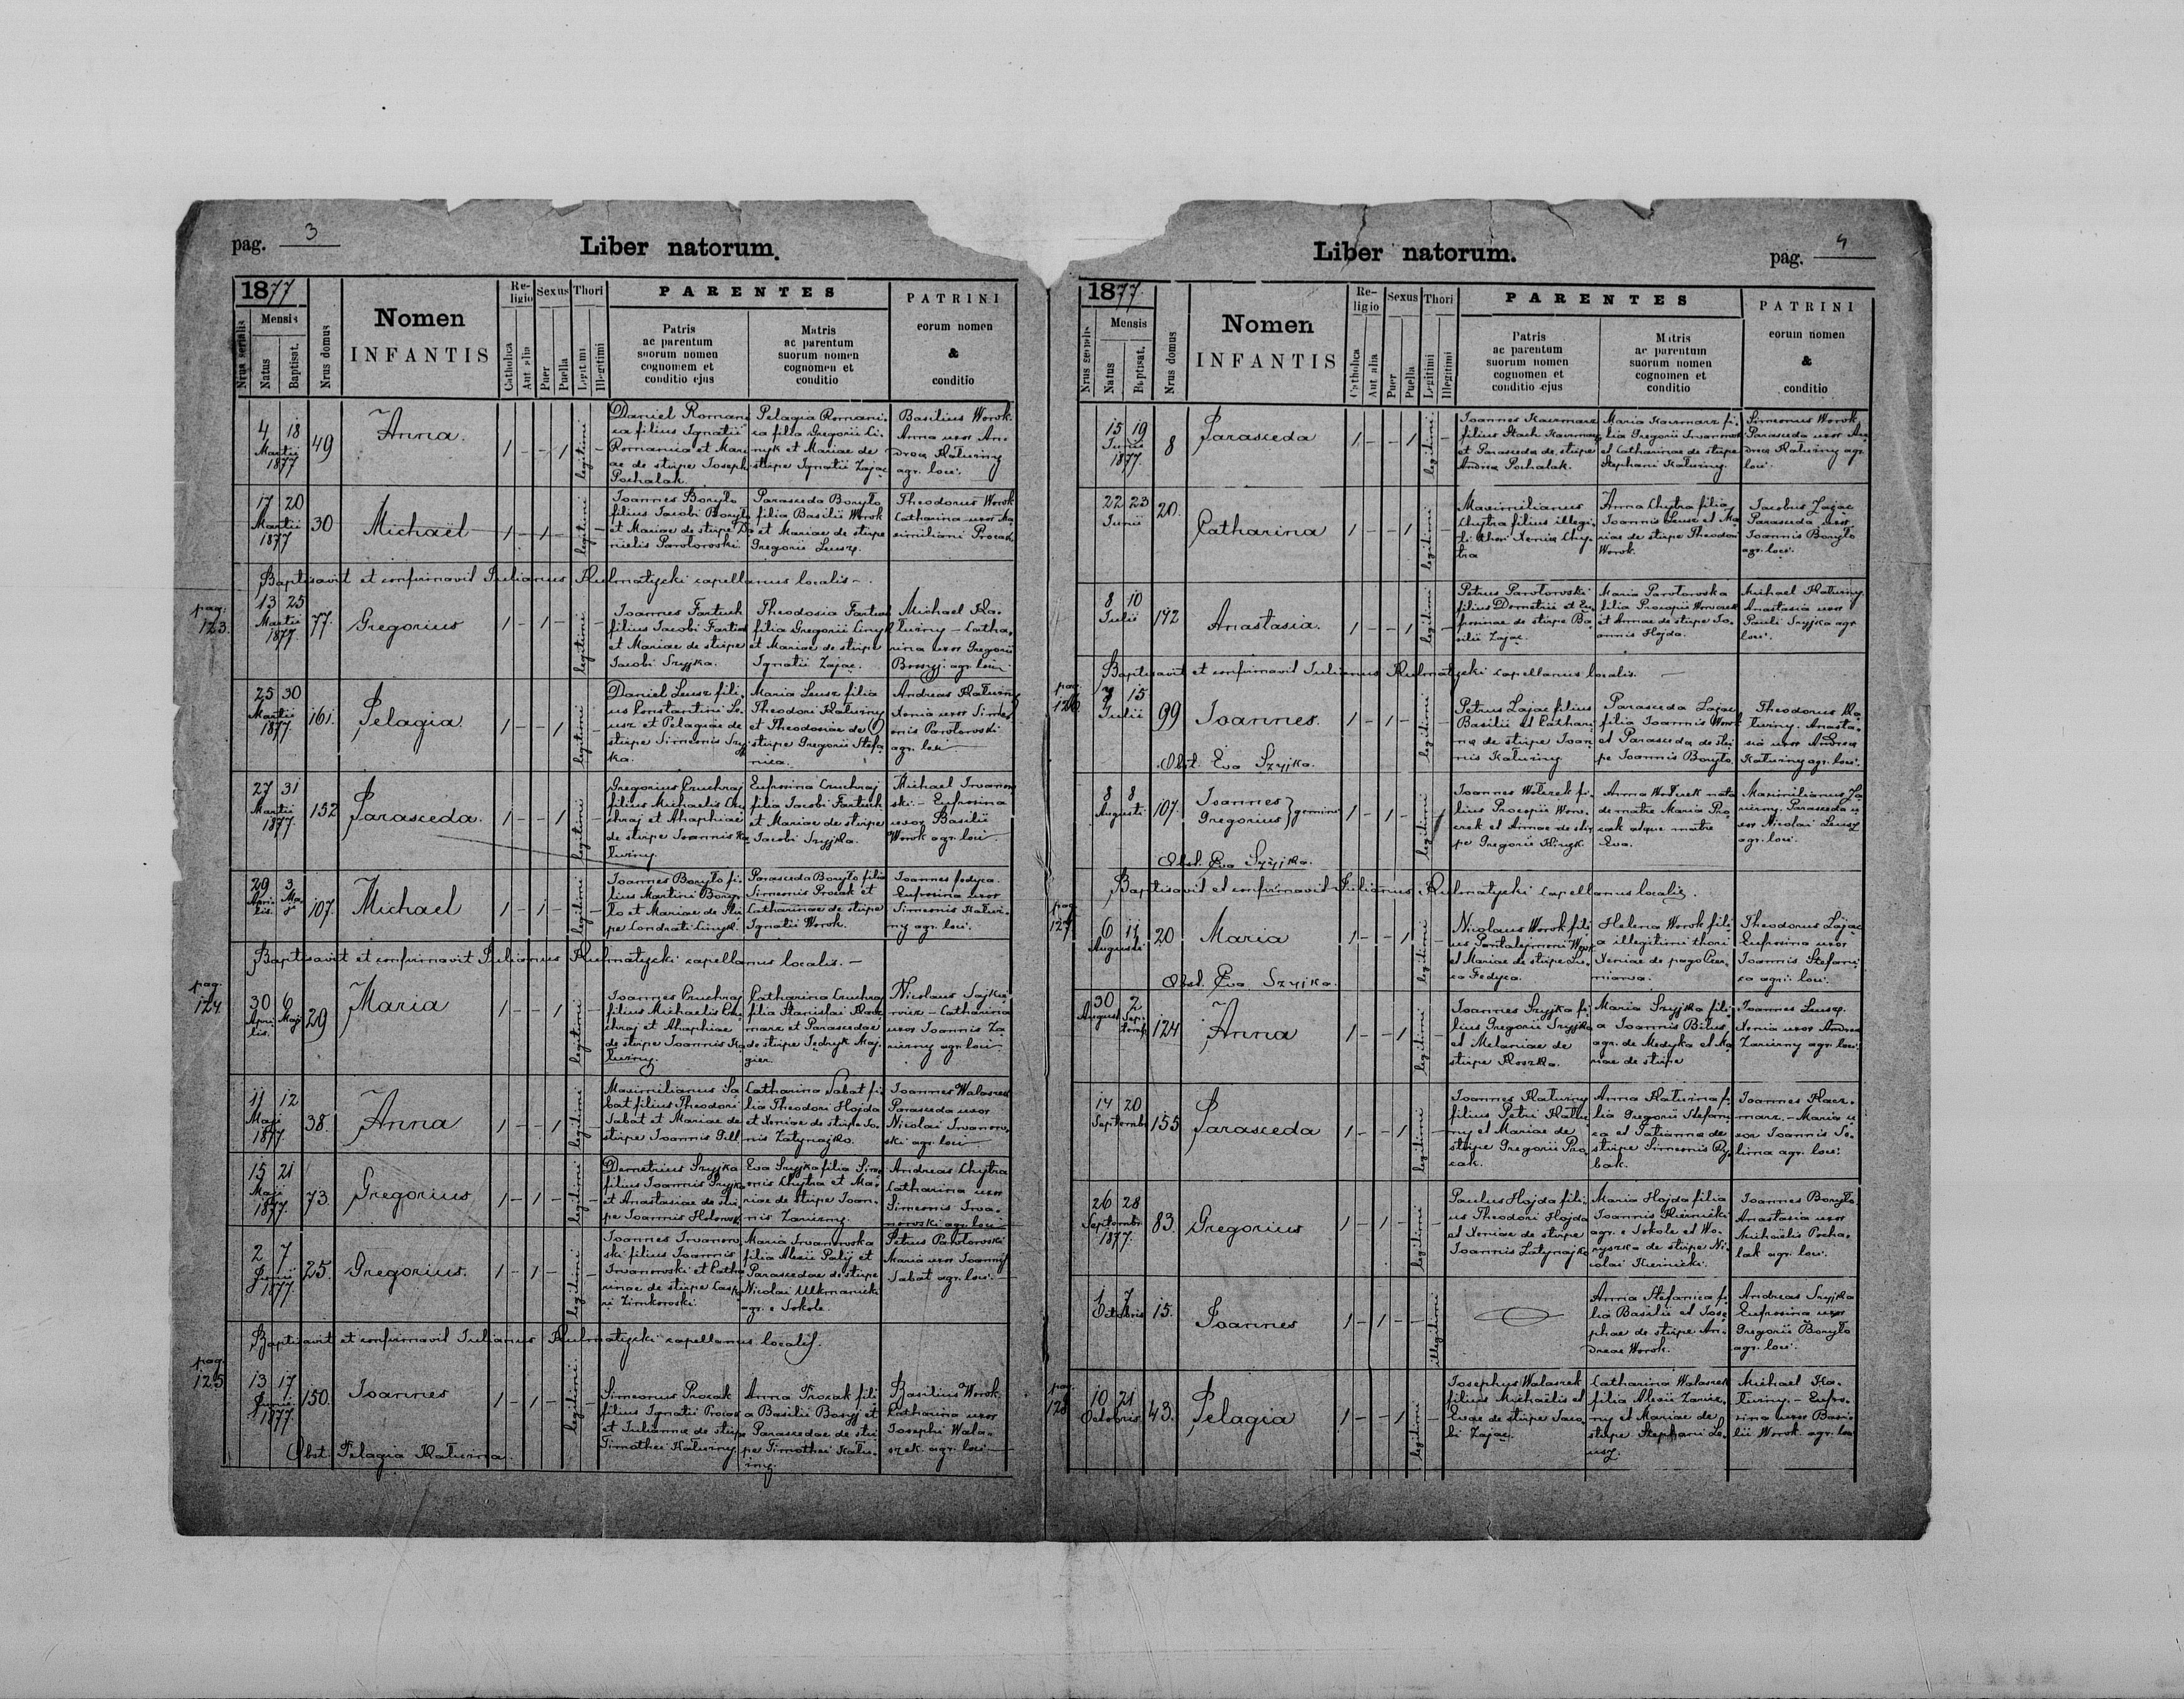 pag. 3
Liber natorum.
1877
Nrus serialis
Mensis
Natus
Baptisat.
Nrus domus
Nomen
INFANTIS
Religio
Catholica
Aut alia
Sexus
Puer
Puella
Thori
Legitimi
Illegitimi
PARENTES
Patris
ac parentum
suorum nomen
cognomen et
conditio ejus
Matris
ac parentum
suorum nomen
cognomen et
conditio
PATRINI
eorum nomen
&
conditio
4 18
Martii
1877
49
Anna.
1 - - 1
legitimi
-
Daniel Romani-
ca filius Ignatii
Romanica et Mari
ae de stirpe Joseph
Pochalak.
Pelagia Romani-
ca filia Gregorii Ci-
nyk et Mariae de
stirpe Ignatii Zając
Basilius Worok.
Anna uxor An-
dreae Kałuziny
agr. loci.
17 20
Martii
1877
30
Michaël
1 - 1 -
legitimi
-
Joannes Boryło
filius Jacobi Boryło
et Mariae de stirpe Da
nielis Pawłowski
Parasceda Boryło
filia Basilii Worok
et Mariae de stirpe
Gregorii Leusz.
Theodorus Worok
Catharina uxor Ma
ximiliani Procak
Baptisavit et confirmavit Julianus Kulmatycki capellanus localis -
pag.
123.
13 25
Martii
1877.
77.
Gregorius
1 - 1 -
legitimi
-
Joannes Fartuch
filius Jacobi Fartuch
et Mariae de stirpe
Jacobi Szyjka.
Theodosia Fartuch
filia Gregorii Cinyk
et Mariae de stirpe
Ignatii Zając.
Michael Ka-
łuziny - Catha-
rina uxor Gregorii
agr. loci
25 30
Martii
1877.
161.
Pelagia
1 - - 1
legitimi
-
Daniel Leusz fili-
us Constantini Le-
usz et Pelagiae de
stirpe Simeonis Szyj
ka.
Maria Leusz filia
Theodori Kałuziny
et Theodosiae de
stirpe Gregorii Stefa
nica.
Andreas Kałuziny
Xenia uxor Sime
onis Pawłowski
agr. loci
27 31
Martii
1877.
152
Parasceda.
1 - - 1
legitimi
-
Gregorius Cruchraj
filius Michaelis Cru
chraj et Ahaphiae
de stirpe Joannis Ka
łuziny.
Eufrosina Cruchraj
filia Jacobi Fartuch
et Mariae de stirpe
Jacobi Szyjka.
Michael Iwanow
ski. - Eufrosina
uxor Basilii
Worok agr. loci
29 3
Apri Ma
lis. ji
107.
Michael
1 - 1 -
legitimi
-
Joannes Boryło fi-
lius Martini Bory-
ło et Mariae de stir
pe Condrati Cinyk.
Parasceda Boryło filia
Simeonis Procak et
Catharinae de stirpe
Ignatii Worok.
Joannes Fedyca.
Eufrosina uxor
Simeonis Kałuzi-
ny agr. loci.
Baptisavit et confirmavit Julianus Kulmatycki capellanus localis. -
pag.
124
30 6
Apri Maji
lis.
29
Maria
1 - - 1
legitimi
-
Joannes Cruchraj
filius Michaelis Cru
chraj et Ahaphiae
de stirpe Joannis Ka
łuziny.
Catharina Cruchraj
filia Stanislai Kacz
marz et Parascedae
de stirpe Jędryk Maj-
gier.
Nicolaus
Catharina
uxor Joannis Za
wierny agr. loci
11 12
Maji
1877.
38.
Anna
1 - - 1
legitimi
-
Maximilianus Sa
bat filius Theodori
Sabat et Mariae de
stirpe Joannis Gill
Catharina Sabat fi
lia Theodori Hojda
et Xeniae de stirpe Jo-
nis Zatynajko.
Joannes Walaszek
Parasceda uxor
Nicolai Iwanow-
ski agr. loci
15 21
Maji
1877.
73.
Gregorius
1 - 1 -
legitimi
-
Demetrius Szyjka
filius Joannis Szyjka
et Anastasiae de stir
pe Joannis
Eva Szyjka filia Sime
onis Chytra et Ma-
riae de stirpe Joan-
nis Zawierny.
Andreas Chytra
Catharina uxor
Simeonis Iwa-
nowski agr. loci
2 7
Junii
1877.
25.
Gregorius.
1 - 1 -
legitimi
-
Joannes Iwanow
ski filius Joannis
Iwanowski et Catha
rinae de stirpe Casp
ri Zimkowski.
Maria Iwanowska
filia Alexii Palij et
Parascedae de stirpe
Nicolai
agr. e Sokole.
Petrus Pawłowski
Maria uxor Joannis
Sabat agr. loci.
Baptisavit et confirmavit Julianus Kulmatycki capellanus localis.
pag.
125
13 17
Junii
1877.
150.
Joannes
1 - 1 -
legitimi
-
Simeonus Procak
filius Ignatii Procak
et Juliannae de stirpe
Timothei Kałuziny
Anna Procak fili
a Basilii et
Parascedae de stir
pe Timothei Kału-
ziny.
Basilius Worok
Catharina uxor
Josephi Wala-
szek agr. loci
Obst. Pelagia Kałuzina.
Liber natorum.
pag. 4
1877.
Nrus serialis
Mensis
Natus
Baptisat.
Nrus domus
Nomen
INFANTIS
Religio
Catholica
Aut alia
Sexus
Puer
Puella
Thori
Legitimi
Illegitimi
PARENTES
Patris
ac parentum
suorum nomen
cognomen et
conditio ejus
Matris
ac parentum
suorum nomen
cognomen et
conditio
PATRINI
eorum nomen
&
conditio
15 19
Junii
1877.
8
Parasceda
1 - - 1
legitimi
-
Joannes Kaczmarz
filius Stach Kaczmarz
et Parasceda de stirpe
Andreae Pochalak.
Maria Kaczmarz fi-
lia Gregorii Iwanows
et Catharinae de stirpe
Stephani Kałuziny.
Simeonus Worok
Parasceda uxor An-
dreae Kałuziny agr.
loci.
22 23
Junii
20.
Catharina
1 - - 1
legitimi
-
Maximilianus
Chytra filius illegi-
ti thori Xeniae Chy-
tra
Anna Chytra filia
Joannis Leusz et Ma
riae de stirpe Theodori
Worok.
Jacobus Zając
Parasceda uxor
Joannis Boryło
agr. loci.
8 10
Julii
142
Anastasia.
1 - - 1
legitimi
-
Petrus Pawłowski
filius Demetrii et Eu
frosinae de stirpe Ba
silii Zając.
Maria Pawłowska
filia Procopii
et Annae de stirpe Jo-
annis Hojda.
Michael Kałuziny.
Anastasia uxor
Pauli Szyjka agr.
loci.
Baptisavit et confirmavit Julianus Kulmatycki capellanus localis. -
pag.
126
7 15
Julii
99
Joannes.
1 - 1 -
legitimi
-
Petrus Zając filius
Basilii et Cathari
nae de stirpe Joan
nis Kałuziny
Parasceda Zając
filia Joannis Worok
et Parasceda de stir
pe Joannis Boryło
Theodorus Ka
łuziny. Anasta-
sia uxor Andreae
Kałuziny agr. loci.
Obst. Eva Szyjka.
8 8
Augusti
107.
Joannes
Gregorius } gemini
1 - 1 -
legitimi
Joannes fi-
lius Procopii
et Annae de stir
pe Gregorii
Anna nata
de matre Maria Pro
cak atque matre
Eva.
Maximilianus Za
wierny. Parasceda u
xor Nicolai Leusz
agr. loci.
Obst. Eva Szyjka.
Baptisavit et confirmavit Julianus Kulmatycki capellanus localis.
pag.
127
6 11
Augusti
20
Maria
1 - - 1
legitimi
-
Nicolaus Worok fili
us Worok
et Mariae de stirpe
Fedyca.
Helena Worok fili
a illegitimi thori
Xeniae de pago
Theodorus Zając
Eufrosina uxor
Joannis Stefani
ca agr. loci.
Obst. Eva Szyjka.
30 2
August Sep-
temb.
124
Anna
1 - - 1
legitimi
-
Joannes Szyjka fi
lius Gregorii Szyjka
et Melaniae de
stirpe Koszka.
Maria Szyjka fili
a Joannis Bilus
agr. de Medyka et Ma
riae de stirpe
Joannes Leusz.
Xenia uxor Andreae
Zawierny agr. loci.
14 20
Septembr
155
Parasceda
1 - - 1
legitimi
-
Joannes Kałuziny
filius Petri Kału
ny et Mariae de
stirpe Gregorii Pro
cak.
Anna Kałuzina fi
lia Gregorii Stefani
ca et Tatianna de
stirpe Simeonis Ry
bak.
Joannes Kacz-
marz. - Maria u
xor Joannis So-
lima agr. loci.
26 28
Septembr
1877.
83.
Gregorius
1 - 1 -
legitimi
-
Paulus Hojda fili-
us Theodori Hojda
et Xeniae de stirpe
Joannis Zatynajko
Maria Hojda filia
Joannis Kiernicki
agr. e Sokole et
de stirpe Ni-
colai Kiernicki.
Joannes Boryło
Anastasia uxor
Michaëlis Pocha-
lak agr. loci.
1 7
Octobris
15.
Joannes
1 - 1 - -
illegitimi
Anna Stefanica fi
lia Basilii et Jose
phae de stirpe An-
dreae Worok.
Andreas Szyjka
Eufrosina uxor
Gregorii Boryło
agr. loci.
pag.
128
10 21
Octobris
43.
Pelagia
1 - - 1
legitimi
-
Josephus Walaszek
filius Michaëlis et
Evae de stirpe Jaco-
bi Zając.
Catharina Walaszek
filia Alexii Zawier-
ny et Mariae de
stirpe Stephani Le-
usz.
Michael Ka-
łuziny. - Eufro-
sina uxor Basi-
lii Worok agr. loci